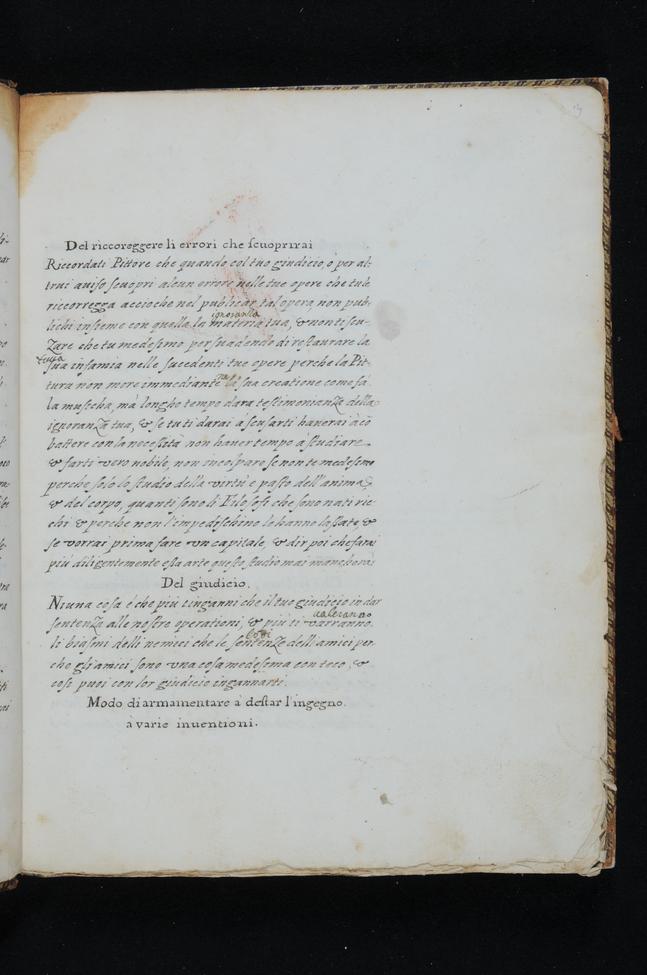 Del riccoreggere li errori che scuoprirai
Riccordati Pittore che quando col tuo giudicio, o per al:
trui auiso scuopri alcun errore nelle tue opere che tu le
riccorregga accioche nel publicar tal opera non pub:
lichi insieme con quella la materia tua, & non ti scu-
ignoranza
zare che tu medesimo persuadendo di restaurare la
tua
sua infamia nelle sucedenti tue opere perche la Pit-
tura non more immediante la sua creatione come fá
la muscha, má longho tempo dara testimonianze della
ignoranza tua, & se tu ti darai á scusarti hauerai á có
battere con la necessitá non hauer tempo á studiare
& farti vero nobile, non incolpare se non te medesimo
perche solo lo studio della virtú é pasto dell'anima,
& del corpo, quanti sono li Filosofi che sono nati ric-
chi & perche non l'impedischino le hanno lassate, &
se vorrai prima fare vn capitale, & dir poi che farai
piú diligentemente esta arte questo studio mai mancherá
Del giudicio.
Niuna cosa é che piú t'inganni che il tuo giudicio in dar
sentenza alle nostre operationi, & piú ti varranno
ualeranno
li biasmi delli nemici che le sentenze dell'amici per
che gli amici sono vna cosa medesima con teco, &
cosi puoi con lor giudicio ingannarti.
Modo di armamentare á destar l'ingegno.
á varie inuentioni.